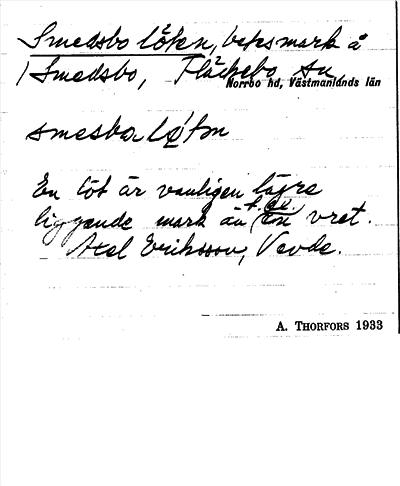 Smedsbo löten, betesmark å
Smedsbo, Fläckebo sn,
Norrbo hd, Västmanlands län
En löt är vanligen lägre
liggande mark än en vret.
Axel Eriksson, Vevde.
A. THORFORS 1933